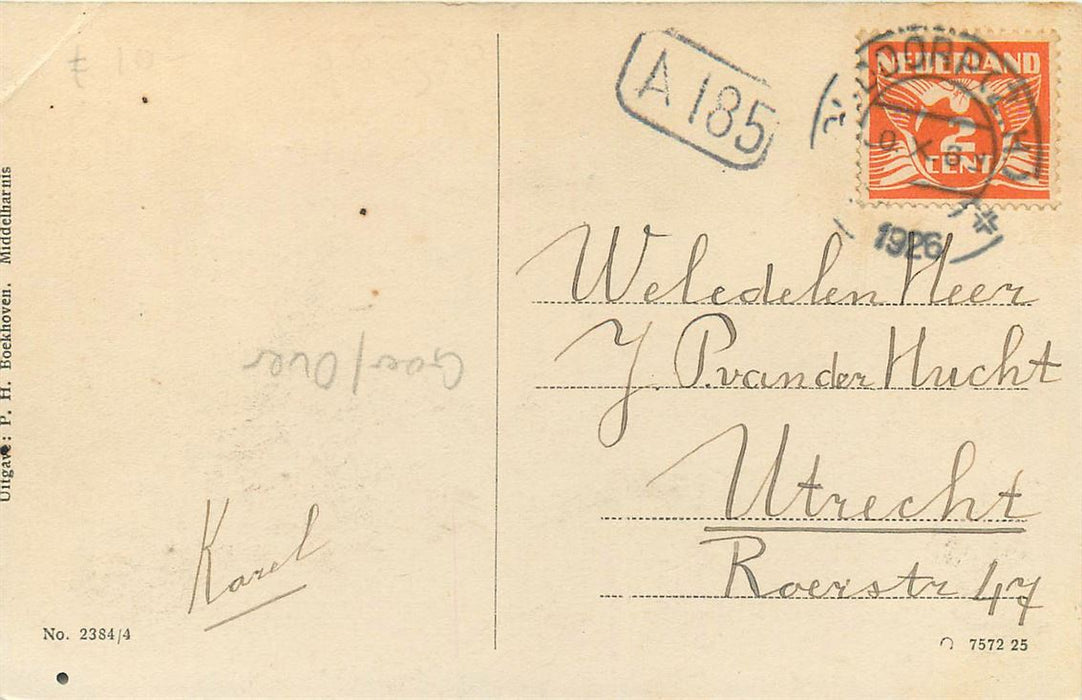 A 185
NEDERLAND
2
CENT
1926
Weledelen Heer
J P. van der Hucht
Utrecht
Roerstr 47
Goer/Over
Karel
Uitgave: P. H. Boekhoven. Middelharnis
No. 2384/4
7572 25